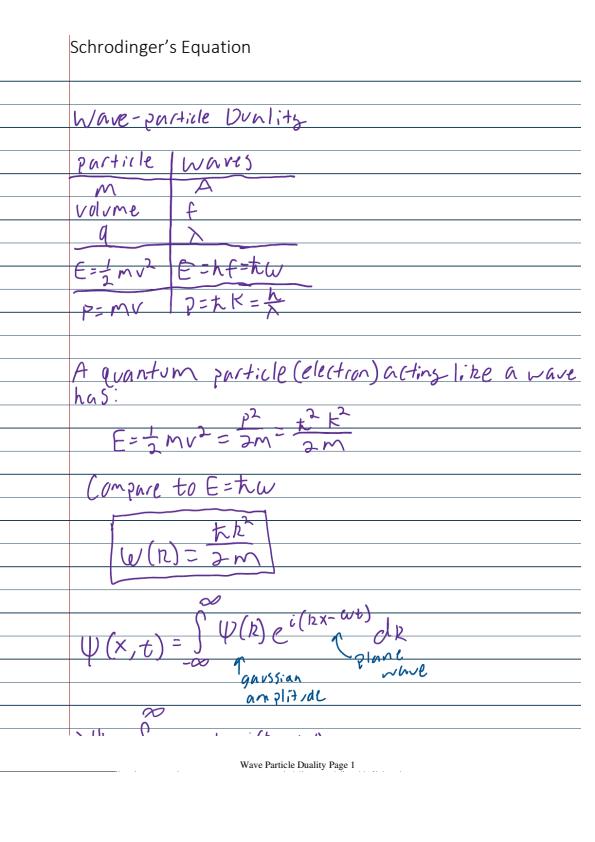 Schrodinger's Equation
Wave-particle Duality
particle | waves
m | A
volume | f
q | λ
E=½mv² | E=hf=ħω
p=mv | p=ħk=h/λ
A quantum particle (electron) acting like a wave
has:
E=½mv²=p²/2m=ħ²k²/2m
Compare to E=ħω
ω(k)=ħk²/2m
ψ(x,t)=∫_{-∞}^{∞} ψ(k)e^{i(kx-ωt)} dk
gaussian
amplitude
plane
wave
Wave Particle Duality Page 1